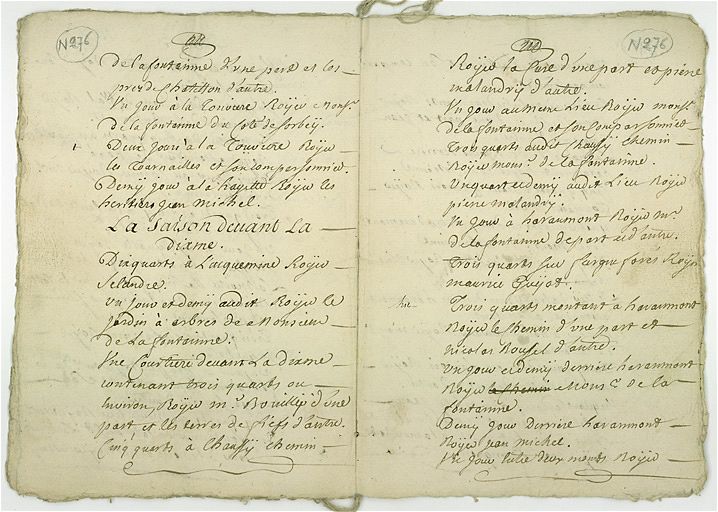 N276
de la fontainne d'une part et les
prez de Chatillon d'autre.
Un jour à la Touviere Royée Monsr
De la fontainne du Coté de Sorbey.
Deux jours a la Touviere Royée
les Tournailles et son Compersonnier.
Demy jour à la hayette Royée les
heritiers jean Michel.
La Saison devant La
Dixme.
Dix quarts à Lucquemine Royée
Selandre.
un jour et demy audit Royée le
Jardin à arbres de Monsieur
De La fontainne.
Une Courtiere devant La Dixme
contenant trois quarts ou
Environ, Royée mr. Bouillé d'une
part et les terres de fiefs d'autre.
Cinq quarts à Chauffy Chemin
N276
Royée la Cure d'une part et piere
malandry d'autre.
Un jour au meme Lieu Royée monsr
De la fontainne et son Compersonnier
Trois quarts audit Chauffy Chemin
Royée Monsr. de la fontainne.
Un quart et demy audit Lieu Royée
piere malandry.
Un jour à haraumont Royée mr.
de la fontainne de part et d'autre.
Trois quarts sur
maurice Guiot.
Trois quarts montant à haraumont
Royée le Chemin d'une part et
nicolas Rousel d'autre.
Un jour et demy derriere haraumont
Royée le Chemin Mons r. de la
fontainne.
Demy jour derriere haraumont
Royée jean michel.
Un jour entre deux monts Royée